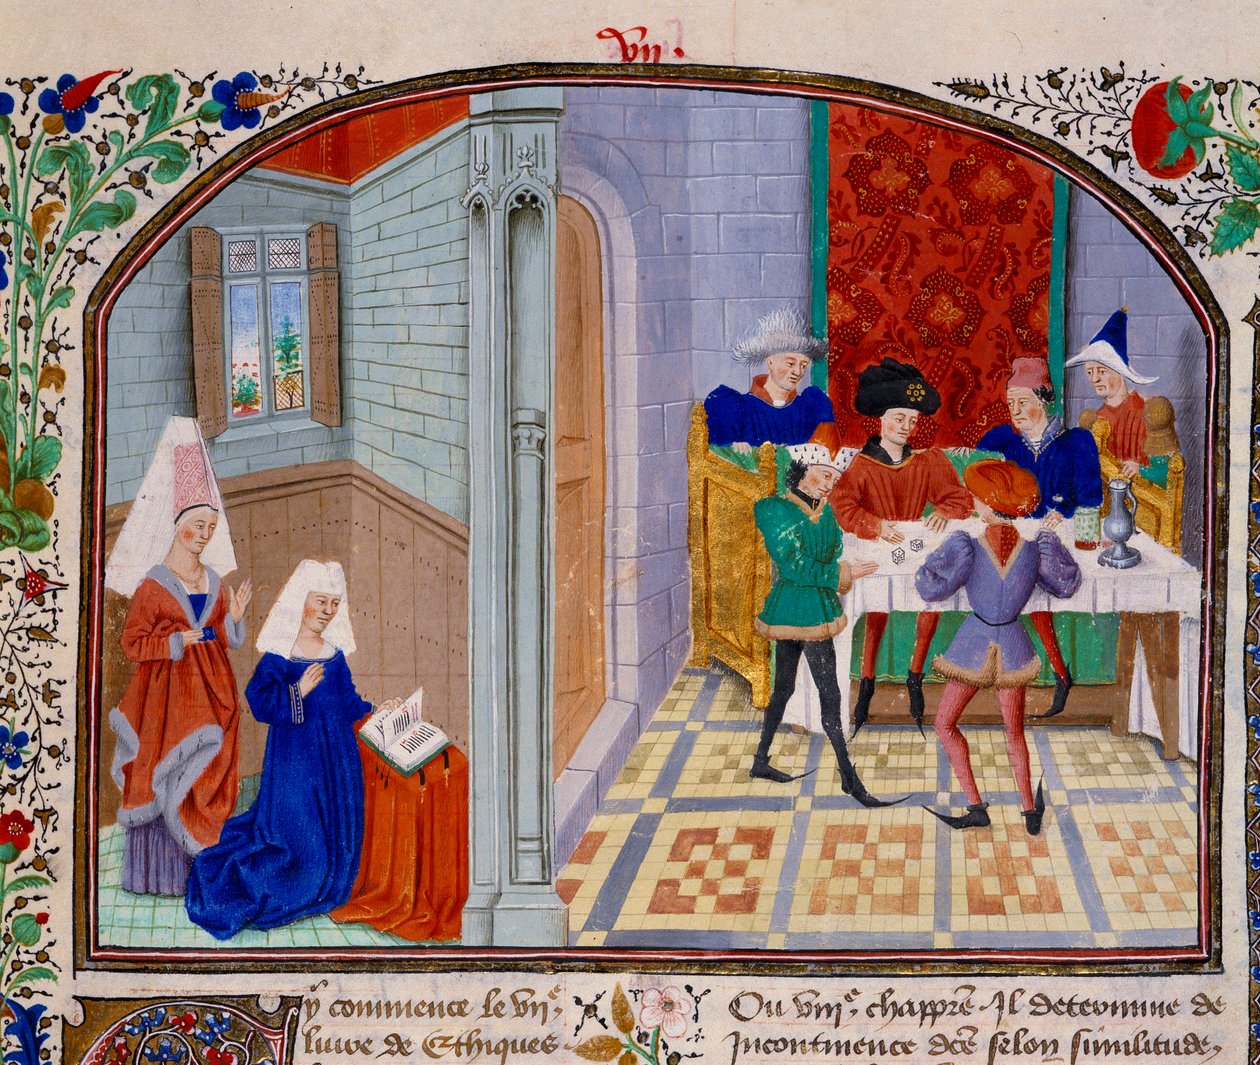 vii.
y commence le vii.e
livre de Ethiques
Ou viii.e chappre. Il determine de
Incontinence dce selon similitude,